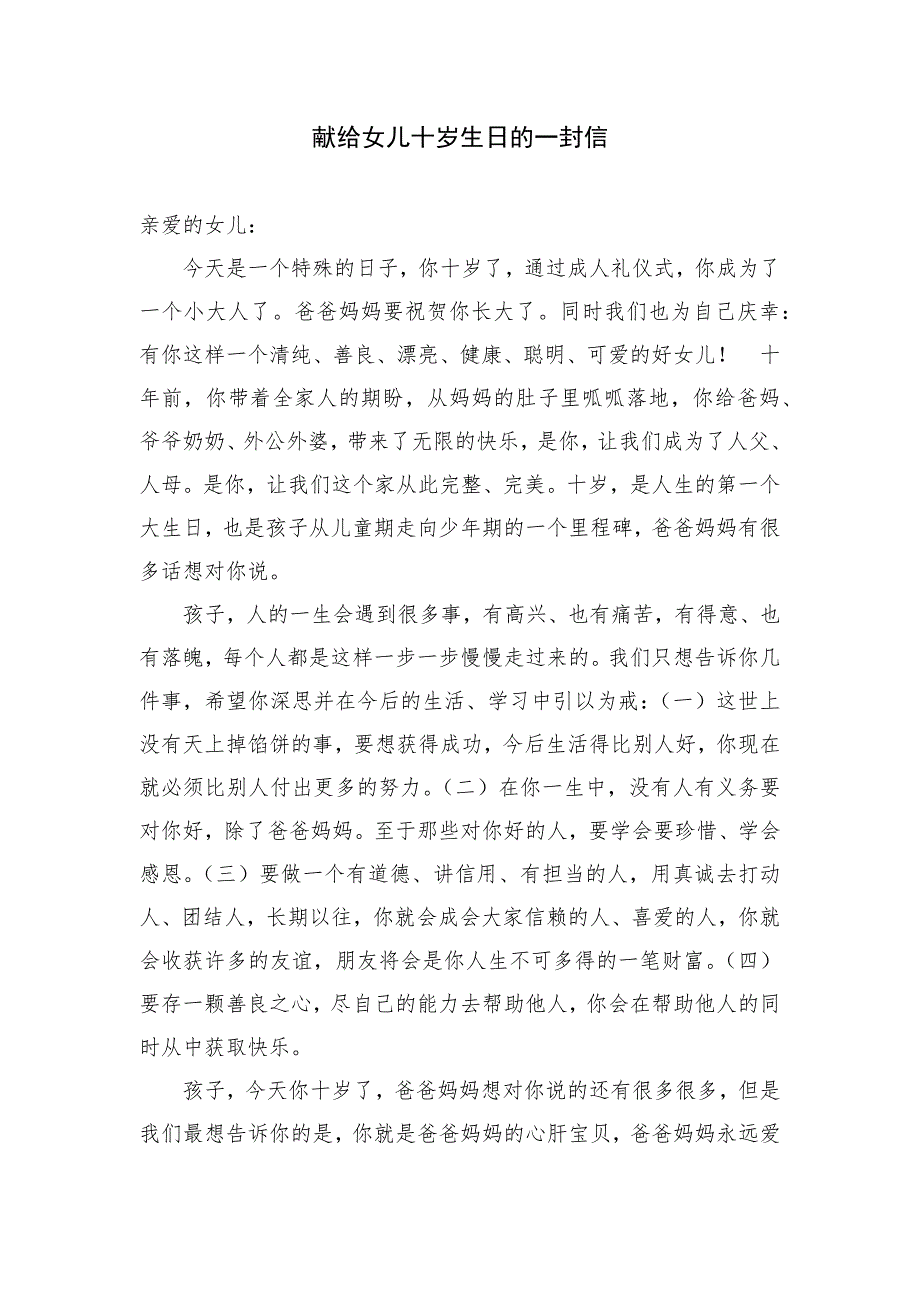 献给女儿十岁生日的一封信
亲爱的女儿：
今天是一个特殊的日子，你十岁了，通过成人礼仪式，你成为了
一个小大人了。爸爸妈妈要祝贺你长大了。同时我们也为自己庆幸：
有你这样一个清纯、善良、漂亮、健康、聪明、可爱的好女儿！　十
年前，你带着全家人的期盼，从妈妈的肚子里呱呱落地，你给爸妈、
爷爷奶奶、外公外婆，带来了无限的快乐，是你，让我们成为了人父、
人母。是你，让我们这个家从此完整、完美。十岁，是人生的第一个
大生日，也是孩子从儿童期走向少年期的一个里程碑，爸爸妈妈有很
多话想对你说。
孩子，人的一生会遇到很多事，有高兴、也有痛苦，有得意、也
有落魄，每个人都是这样一步一步慢慢走过来的。我们只想告诉你几
件事，希望你深思并在今后的生活、学习中引以为戒：（一）这世上
没有天上掉馅饼的事，要想获得成功，今后生活得比别人好，你现在
就必须比别人付出更多的努力。（二）在你一生中，没有人有义务要
对你好，除了爸爸妈妈。至于那些对你好的人，要学会要珍惜、学会
感恩。（三）要做一个有道德、讲信用、有担当的人，用真诚去打动
人、团结人，长期以往，你就会成会大家信赖的人、喜爱的人，你就
会收获许多的友谊，朋友将会是你人生不可多得的一笔财富。（四）
要存一颗善良之心，尽自己的能力去帮助他人，你会在帮助他人的同
时从中获取快乐。
孩子，今天你十岁了，爸爸妈妈想对你说的还有很多很多，但是
我们最想告诉你的是，你就是爸爸妈妈的心肝宝贝，爸爸妈妈永远爱